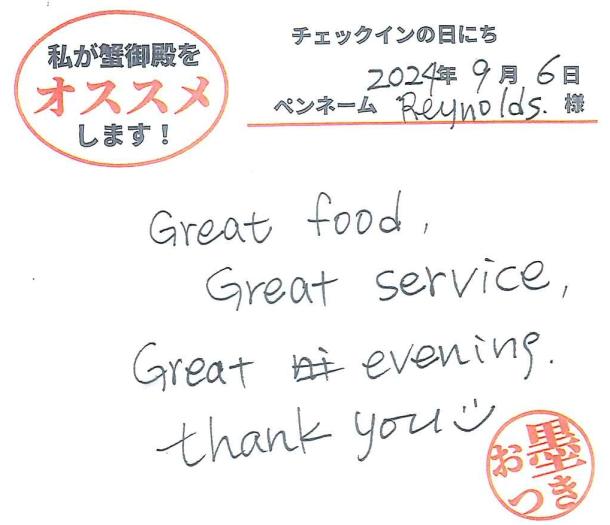 私が蟹御殿を
オススメ
します！
チェックインの日にち
2024年 9月 6日
ペンネーム Reynolds. 様
Great food,
Great service,
Great evening.
thank you
お墨
つき